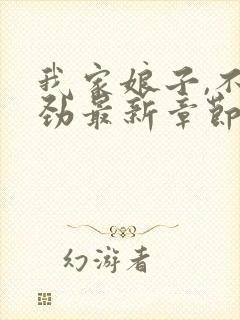 我家娘子,不
劲最新章节
幻游者